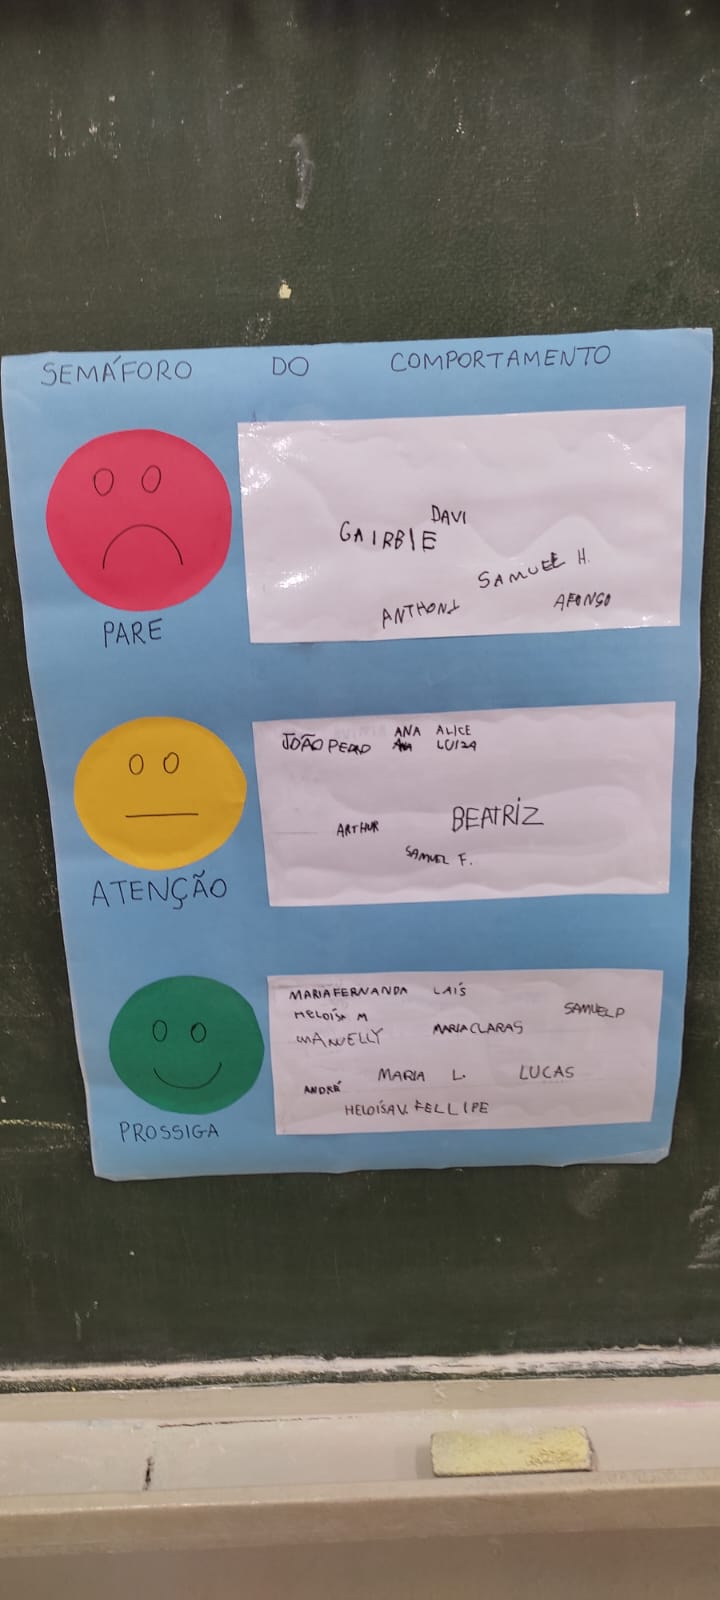 SEMÁFORO DO COMPORTAMENTO
DAVI
GAIRBIE
SAMUEL H.
ANTHONY
AFONSO
PARE
JOÃO PEDRO
ANA ALICE
ANA LUIZA
ARTHUR
BEATRIZ
SAMUEL F.
ATENÇÃO
MARIA FERNANDA LAÍS
HELOÍSA M
SAMUEL P
MANUELLY
MARIA CLARA S
ANDRÉ
MARIA L.
LUCAS
HELOÍSA V. FELLIPE
PROSSIGA